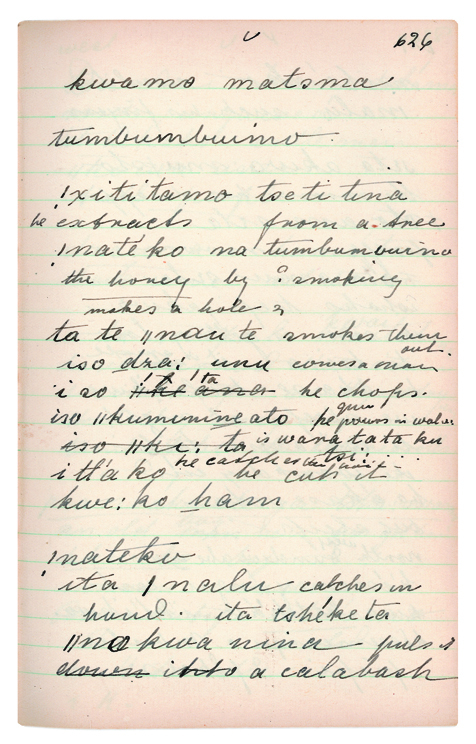 626
kwamo matsma
tumbumbuimo
!xititamo tsetitina
he extracts from a tree
!natéko na tumbumbuino
the honey by ? smoking
makes a hole &
ta te ǁnau te smokes them
out.
iso dza: unu comes a man
iso !ta he chops.
iso ǁkumunineato he pours in water
gun
iso ǁki: ta is wana tata ku
tsi: . . .
he catches in
he cuts it
kwe: ko ham
!nateko
ita ǀnalu catches in
hand. ita tshéketa
ǁnokwa nina puts it
down into a calabash